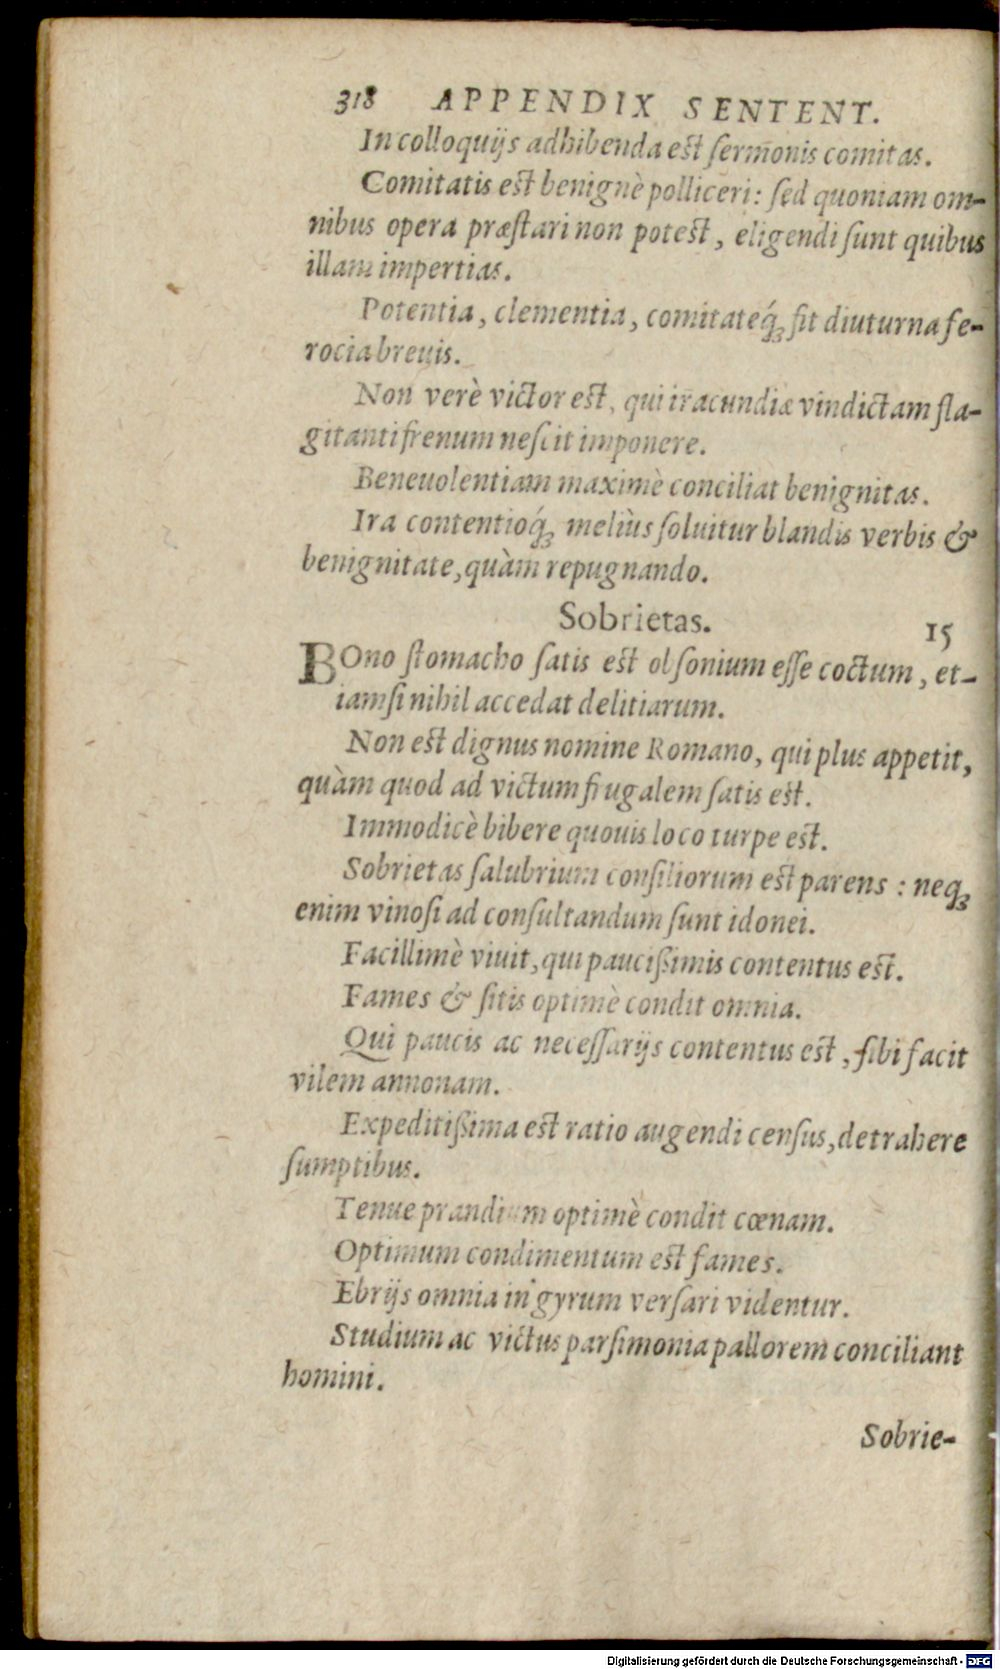 318 APPENDIX SENTENT.
In colloquijs adhibenda est sermonis comitas.
Comitatis est benignè polliceri: sed quoniam om-
nibus opera præstari non potest, eligendi sunt quibus
illam impertias.
Potentia, clementia, comitateq́; fit diuturna fe-
rocia breuis.
Non verè victor est, qui iracundiæ vindictam fla-
gitanti frenum nescit imponere.
Beneuolentiam maximè conciliat benignitas.
Ira contentioq́; meliùs soluitur blandis verbis &
benignitate, quàm repugnando.
Sobrietas. 15
BOno stomacho satis est obsonium esse coctum, et-
iamsi nihil accedat delitiarum.
Non est dignus nomine Romano, qui plus appetit,
quàm quod ad victum frugalem satis est.
Immodicè bibere quouis loco turpe est.
Sobrietas salubrium consiliorum est parens: neq;
enim vinosi ad consultandum sunt idonei.
Facillimè viuit, qui paucißimis contentus est.
Fames & sitis optimè condit omnia.
Qui paucis ac necessarijs contentus est, sibi facit
vilem annonam.
Expeditißima est ratio augendi census, detrahere
sumptibus.
Tenue prandium optimè condit cœnam.
Optimum condimentum est fames.
Ebrijs omnia in gyrum versari videntur.
Studium ac victus parsimonia pallorem conciliant
homini.
Sobrie-
Digitalisierung gefördert durch die Deutsche Forschungsgemeinschaft - DFG